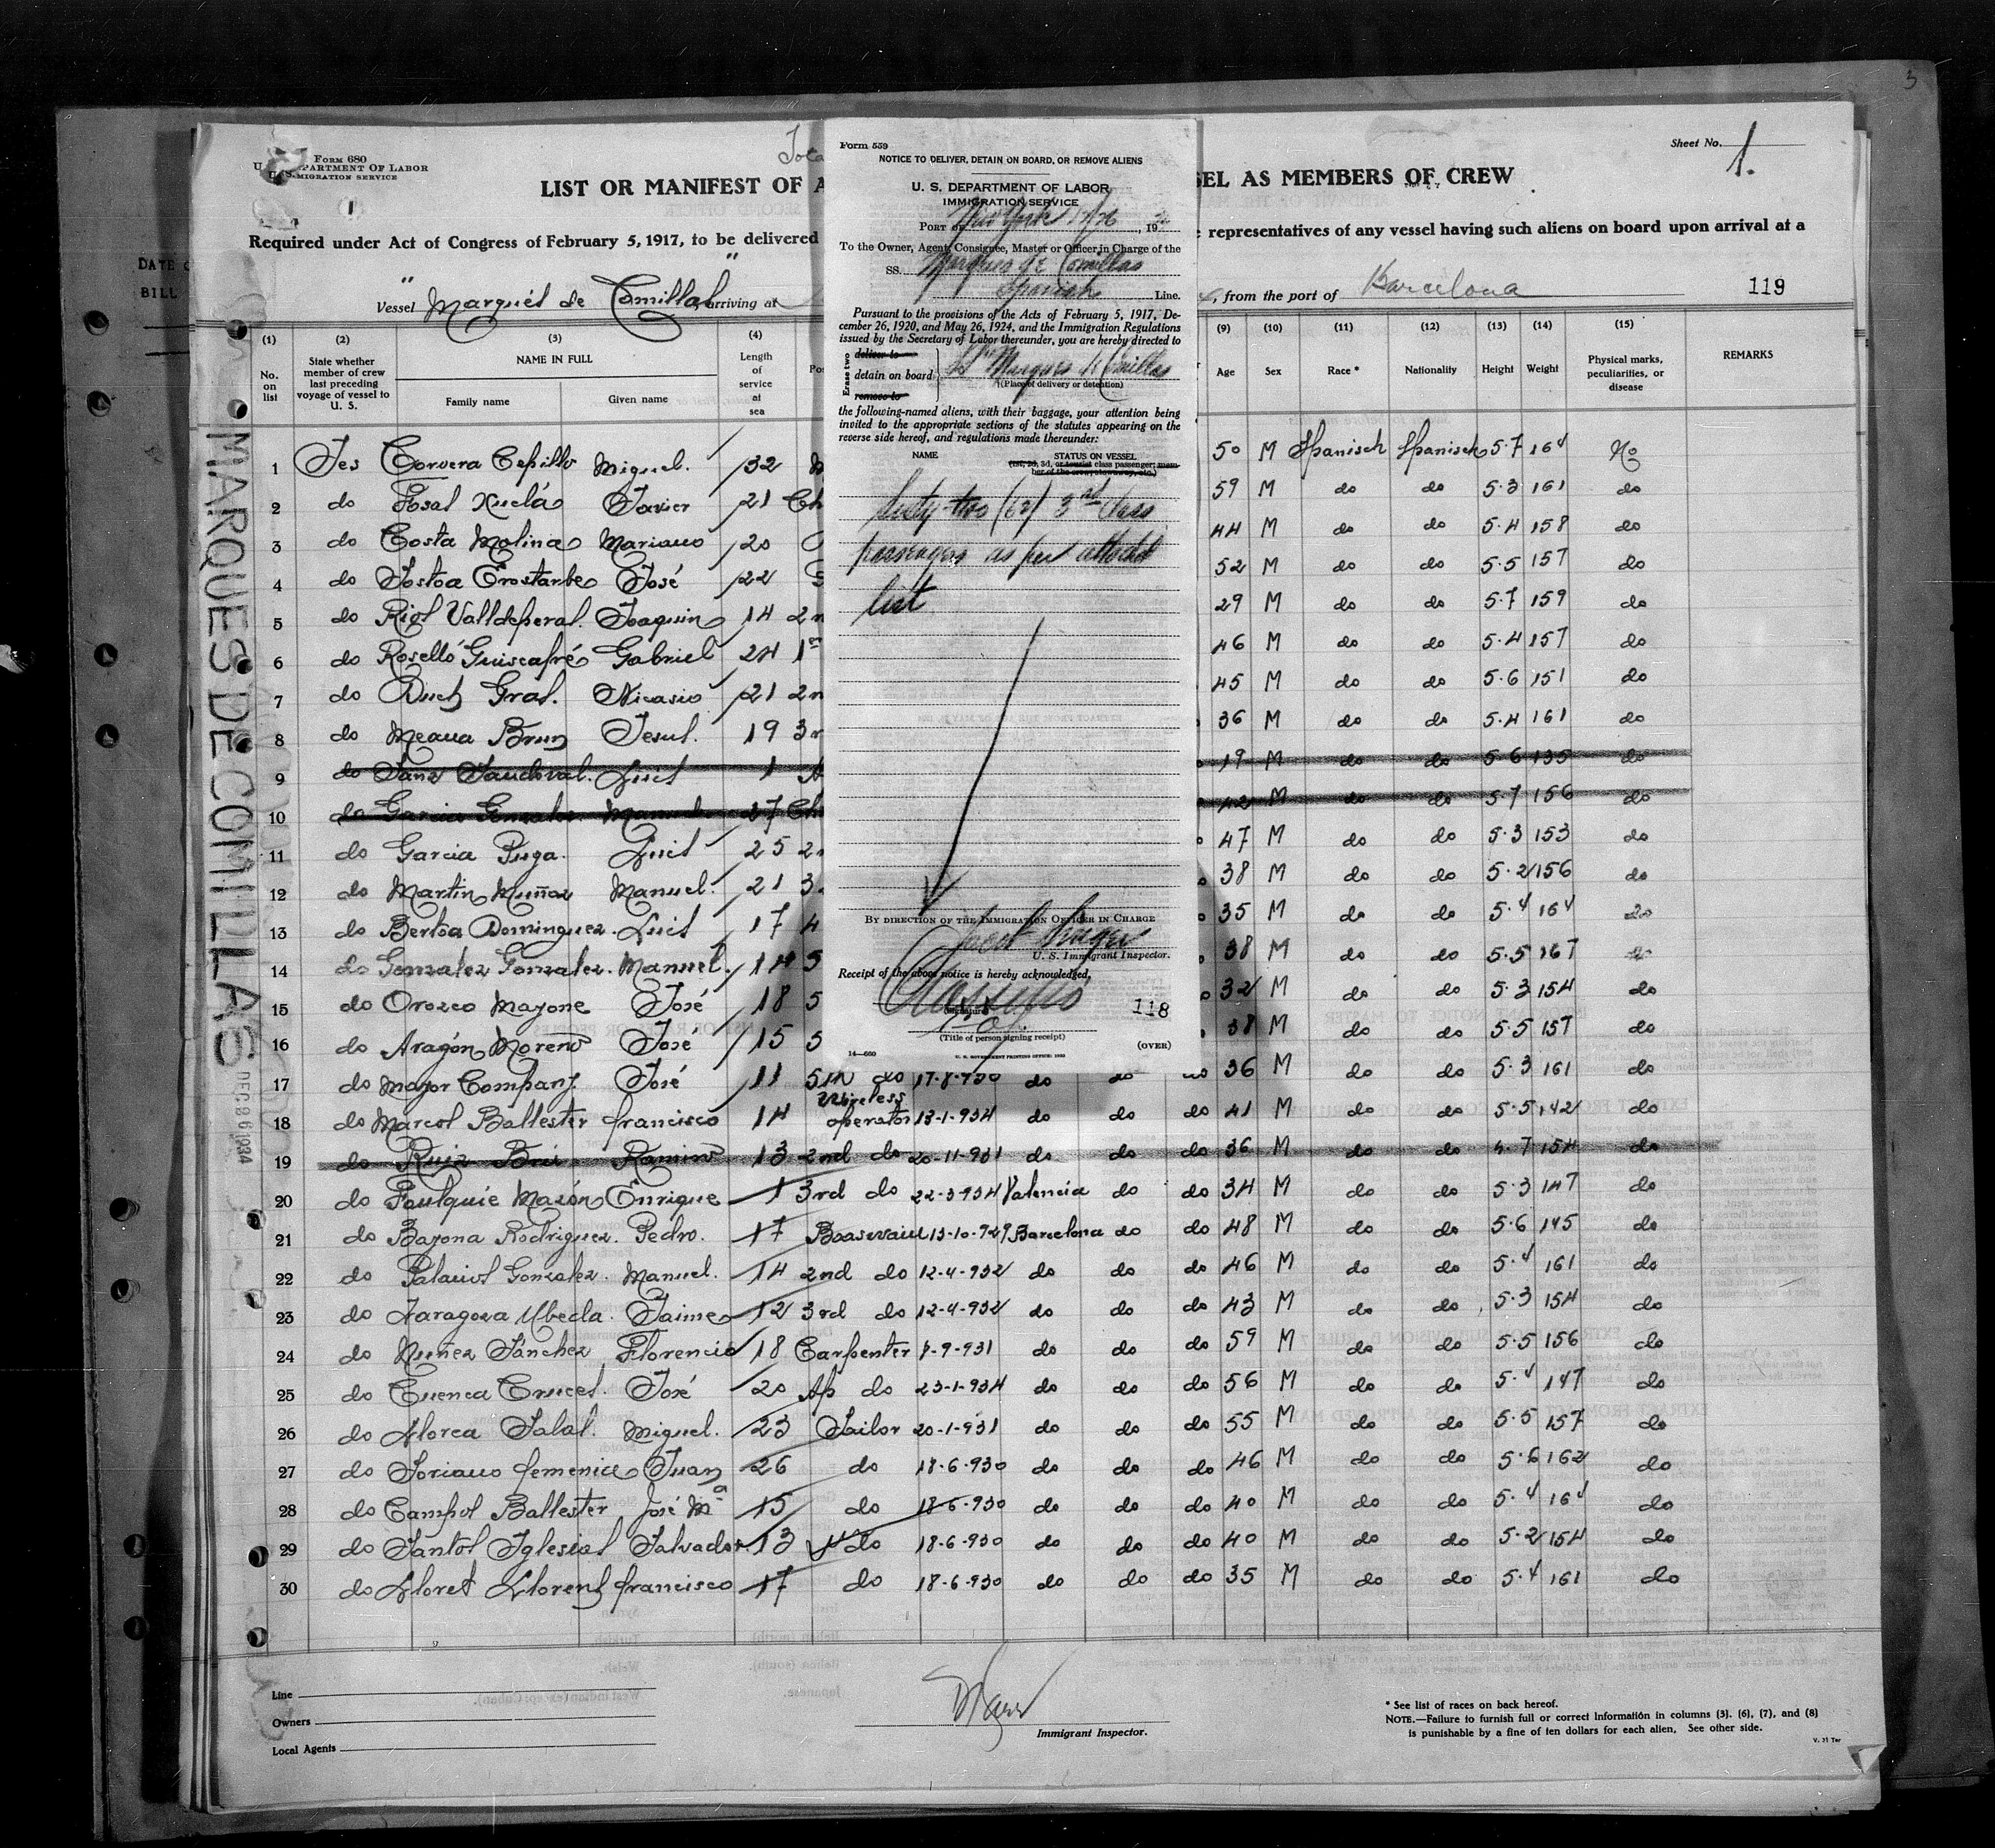 3
Form 680
U. S. DEPARTMENT OF LABOR
IMMIGRATION SERVICE
1
Sheet No. 1.
LIST OR MANIFEST OF A
SEL AS MEMBERS OF CREW
Required under Act of Congress of February 5, 1917, to be delivered
representatives of any vessel having such aliens on board upon arrival at a
Vessel "Marqués de Comillas" arriving at
, from the port of Barcelona
119
DATE O
BILL
MARQUES DE COMILLAS
DEC 26 1934
Form 559
NOTICE TO DELIVER, DETAIN ON BOARD, OR REMOVE ALIENS
U. S. DEPARTMENT OF LABOR
IMMIGRATION SERVICE
PORT OF New York 12/26, 19
To the Owner, Agent, Consignee, Master or Officer in Charge of the
SS. Marques de Comillas
Spanish Line.
Pursuant to the provisions of the Acts of February 5, 1917, De-
cember 26, 1920, and May 26, 1924, and the Immigration Regulations
issued by the Secretary of Labor thereunder, you are hereby directed to
Erase two
deliver to
detain on board
remove to
SS Marques de Comillas
(Place of delivery or detention)
the following-named aliens, with their baggage, your attention being
invited to the appropriate sections of the statutes appearing on the
reverse side hereof, and regulations made thereunder:
NAME STATUS ON VESSEL
(1st, 2d, 3d, or tourist class passenger; mem-
ber of the crew, stowaway, etc.)
Sixty-two (62) 3rd Class
passengers as per attached
list
BY DIRECTION OF THE IMMIGRATION OFFICER IN CHARGE
U. S. Immigrant Inspector.
Receipt of the above notice is hereby acknowledged,
118
(Title of person signing receipt)
(OVER)
14—660 U. S. GOVERNMENT PRINTING OFFICE: 1932
(1) (2) (3) (4) (9) (10) (11) (12) (13) (14) (15)
No. on list
State whether member of crew last preceding voyage of vessel to U. S.
NAME IN FULL
Family name Given name
Length of service at sea
Age Sex Race * Nationality Height Weight Physical marks, peculiarities, or disease REMARKS
1 Yes Corvera Cepillo Miguel. 32 50 M Spanisch Spanisch 5·7 164 No
2 do Fosal Xuclá Javier 21 Ch 59 M do do 5·3 161 do
3 do Costa Molina Mariano 20 44 M do do 5·4 158 do
4 do José 22 52 M do do 5·5 157 do
5 do Riol Valldeperal. Joaquin 14 2n 29 M do do 5·7 159 do
6 do Roselló Guiscafré Gabriel 24 1er 46 M do do 5·4 157 do
7 do Duch Gral. Nicasio 21 2n 45 M do do 5·6 151 do
8 do Meaua Brun Jesus. 19 3r 36 M do do 5·4 161 do
9 do Sanz Sandoval. Luis 1 A 19 M do do 5·6 135 do
10 do Garcia Gonzalez Manuel 27 Ch 42 M do do 5·7 156 do
11 do Garcia Puga. Luis 25 2n 47 M do do 5·3 153 do
12 do Martin Muñoz Manuel. 21 3 38 M do do 5·2 156 do
13 do Bertoa Dominguez. Luis 17 4 35 M do do 5·4 164 do
14 do Gonzalez Gonzalez. Manuel. 14 5 38 M do do 5·5 167 do
15 do Orozco Mayone José 18 5 32 M do do 5·3 154 do
16 do Aragón Moreno José 15 5 38 M do do 5·5 157 do
17 do Mayor Company. José 11 5th do 17-8-930 do do do 36 M do do 5·3 161 do
18 do Marcos Ballester francisco 14 Wireless operator 13-1-934 do do do 41 M do do 5·5 142 do
19 do Ruiz Bri Ramiro 13 2nd do 20-11-931 do do do 36 M do do 4·7 154 do
20 do Foulquie Mazón Enrique 1 3rd do 22-3-934 Valencia do do 34 M do do 5·3 147 do
21 do Bayona Rodriguez. Pedro. 17 Boaswain 13-10-929 Barcelona do do 48 M do do 5·6 145 do
22 do Palacios Gonzalez. Manuel. 14 2nd do 12-4-932 do do do 46 M do do 5·4 161 do
23 do Zaragoza Ubeda. Jaime 12 3rd do 12-4-932 do do do 43 M do do 5·3 154 do
24 do Nuñez Sánchez Florencio 18 Carpenter 7-9-931 do do do 59 M do do 5·5 156 do
25 do Cuenca Cruces. José 20 Ap do 23-1-934 do do do 56 M do do 5·4 147 do
26 do Llorca Salas. Miguel. 23 Sailor 20-1-931 do do do 55 M do do 5·5 157 do
27 do Soriano femenia Juan 26 do 18-6-930 do do do 46 M do do 5·6 162 do
28 do Campos Ballester José Mª 15 do 18-6-930 do do do 40 M do do 5·4 164 do
29 do Santos Iglesias Salvador. 13 do 18-6-930 do do do 40 M do do 5·2 154 do
30 do Lloret Llorens francisco 17 do 18-6-930 do do do 35 M do do 5·4 161 do
Line
Owners
Local Agents
Immigrant Inspector.
* See list of races on back hereof.
NOTE.—Failure to furnish full or correct information in columns (3), (6), (7), and (8)
is punishable by a fine of ten dollars for each alien. See other side.